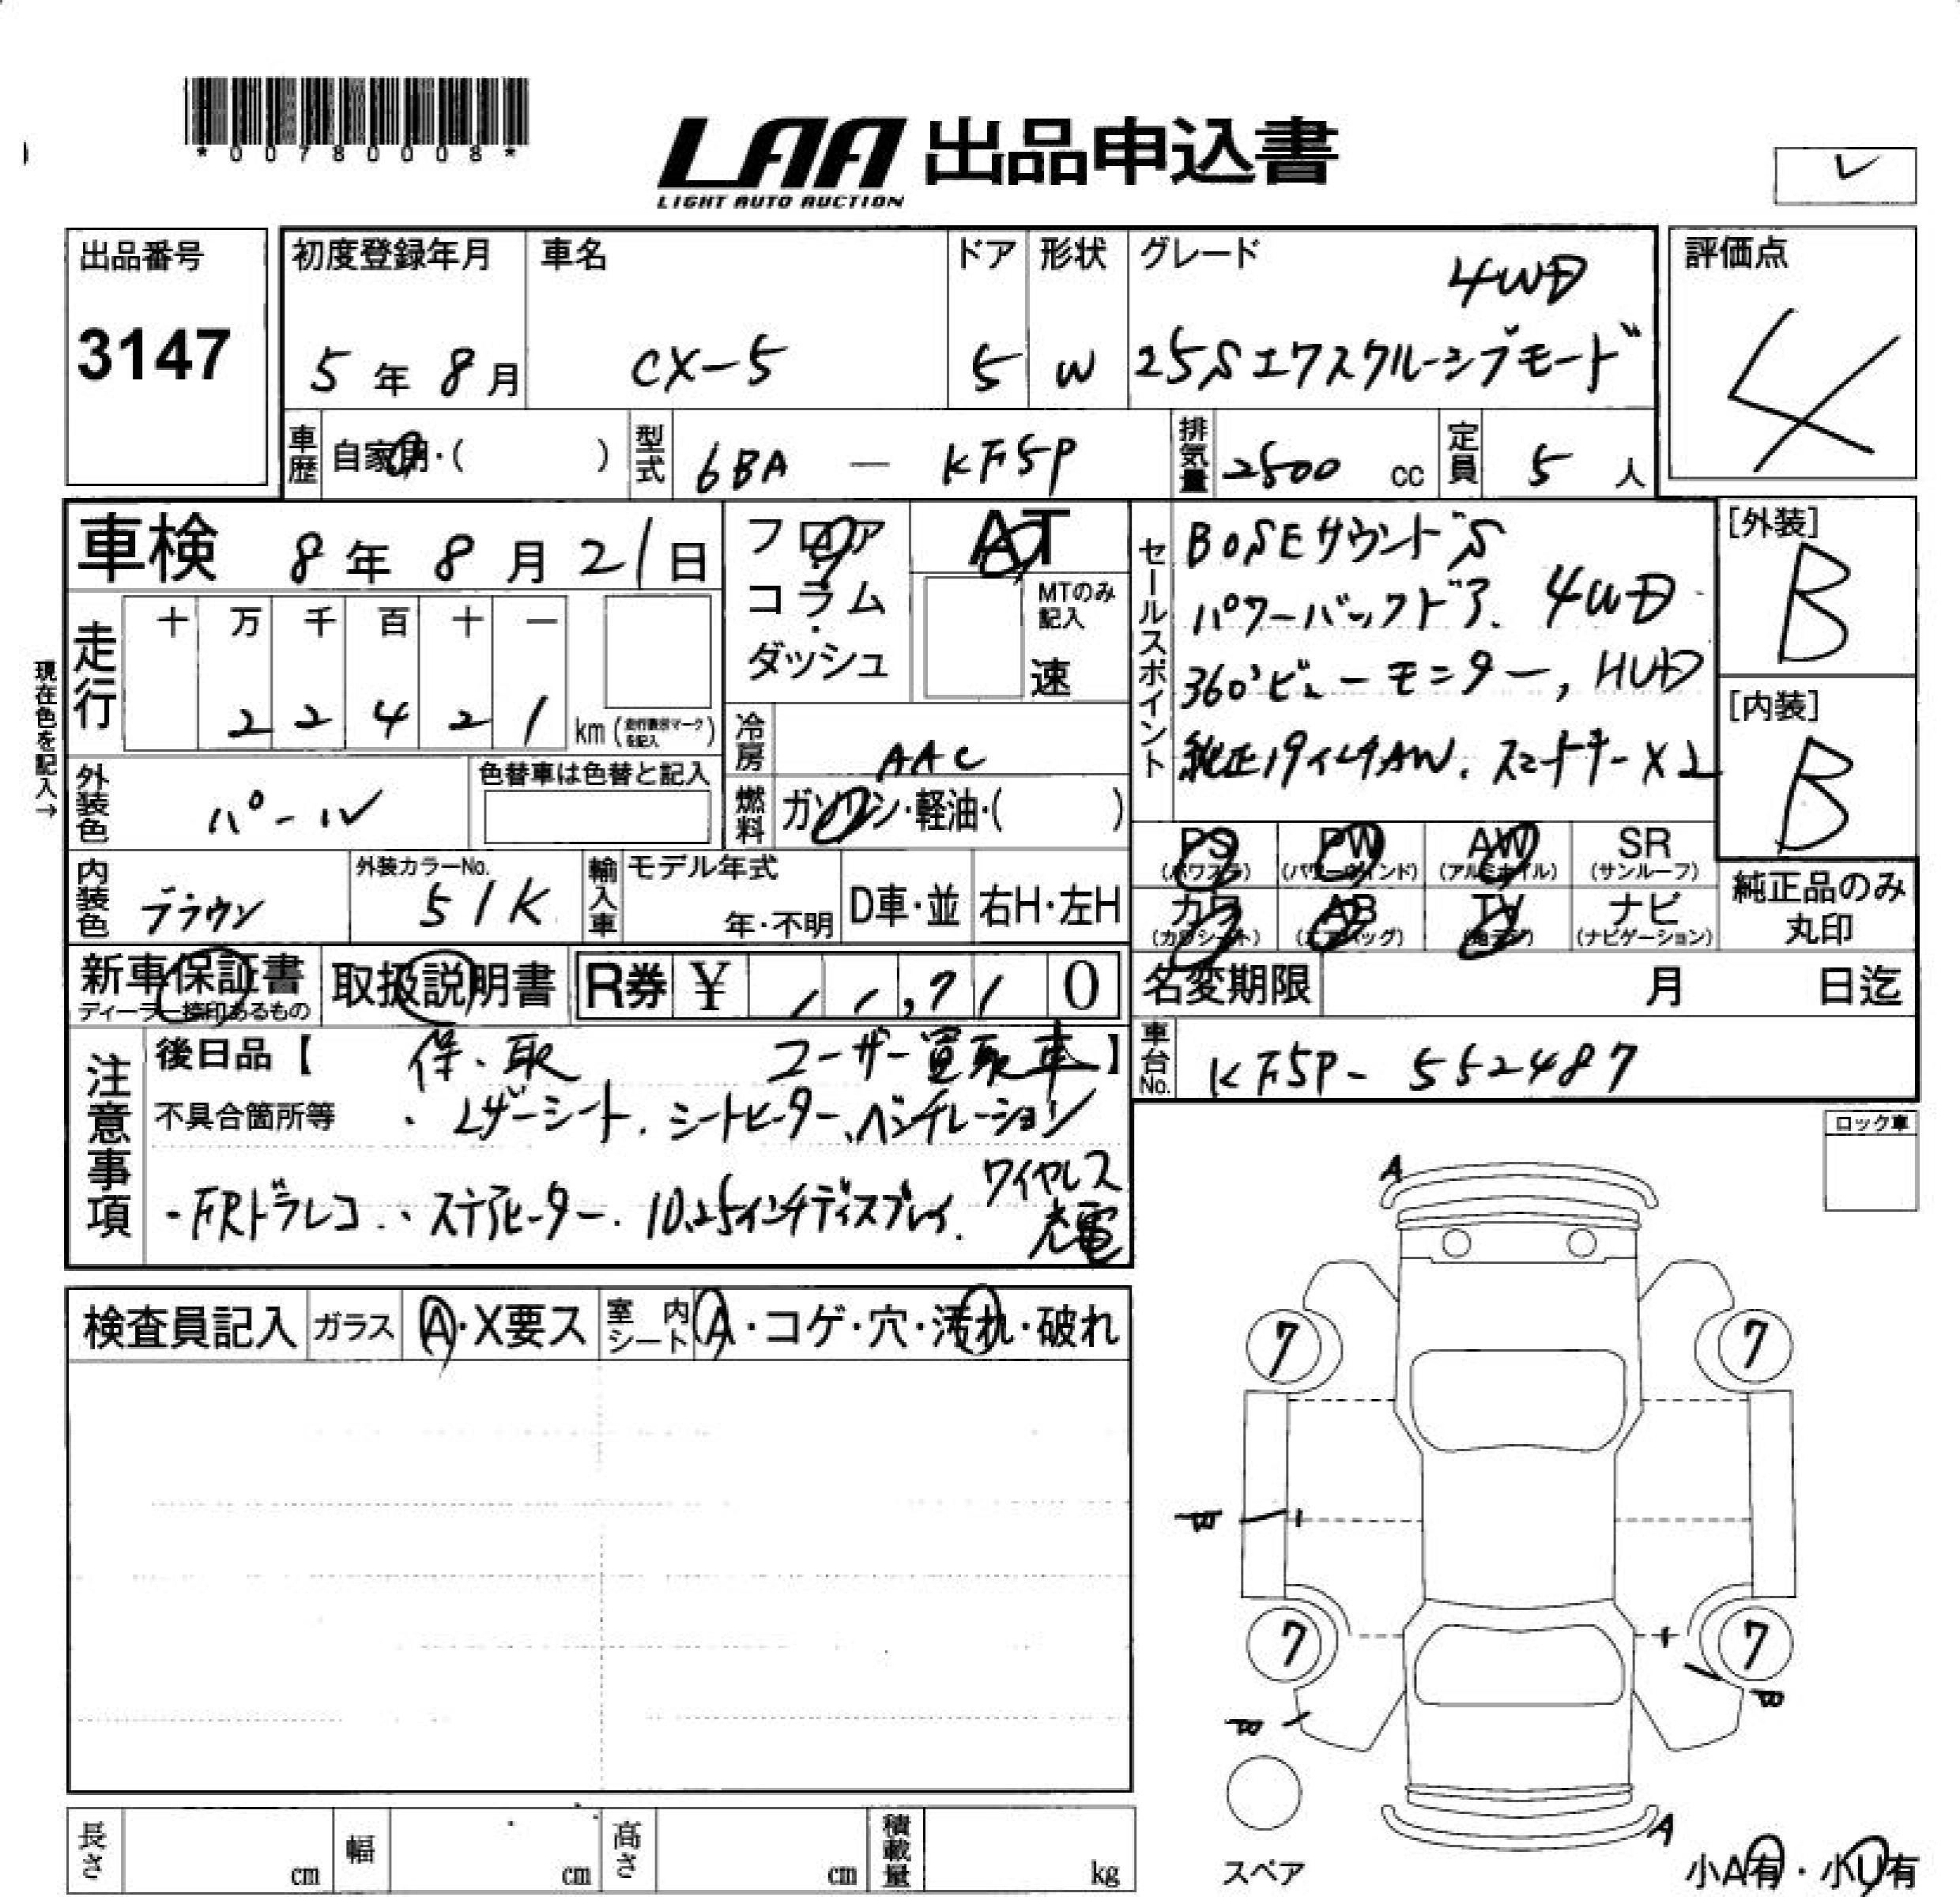 *00780008*
LAA 出品申込書
LIGHT AUTO AUCTION
出品番号
3147
初度登録年月
5年 8月
車名
CX-5
ドア
5
形状
W
グレード
4WD
25Sエクスクルーシブモード
評価点
4
車歴 自家用・( )
型式 6BA — KF5P
排気量 2500 cc
定員 5 人
車検 8年 8月 21日
フロア
コラム
・
ダッシュ
AT
MTのみ記入
速
セールスポイント
BOSEサウンドS
パワーバックドア、4WD
360°ビューモニター, HUD
純正19インチAW、スマートキーX2
[外装]
B
[内装]
B
現在色を記入→
走行
十 万 千 百 十 一
2 2 4 2 1
km(走行表示マークを記入)
冷房 AAC
燃料 ガソリン・軽油・( )
外装色 パール
色替車は色替と記入
内装色 ブラウン
外装カラーNo.
51K
輸入車
モデル年式
年・不明
D車・並
右H・左H
PS
(パワステ)
PW
(パワーウインド)
AW
(アルミホイル)
SR
(サンルーフ)
カワ
(カワシート)
AB
(エアバッグ)
TV
(地デジ)
ナビ
(ナビゲーション)
純正品のみ
丸印
新車保証書
ディーラー捺印あるもの
取扱説明書
R券 ¥ 11,710
名変期限 月 日迄
注意事項
後日品【 保、取 ユーザー買取車 】
不具合箇所等 ・レザーシート、シートヒーター、ベンチレーション
・FRドラレコ、・ステアヒーター、10.25インチディスプレイ、ワイヤレス
充電
車台No. KF5P- 552487
ロック車
検査員記入
ガラス A・X要ス
室内シート A・コゲ・穴・汚れ・破れ
A
7 7
7 7
A
スペア
小A有・小U有
長さ cm
幅 cm
高さ cm
積載量 kg